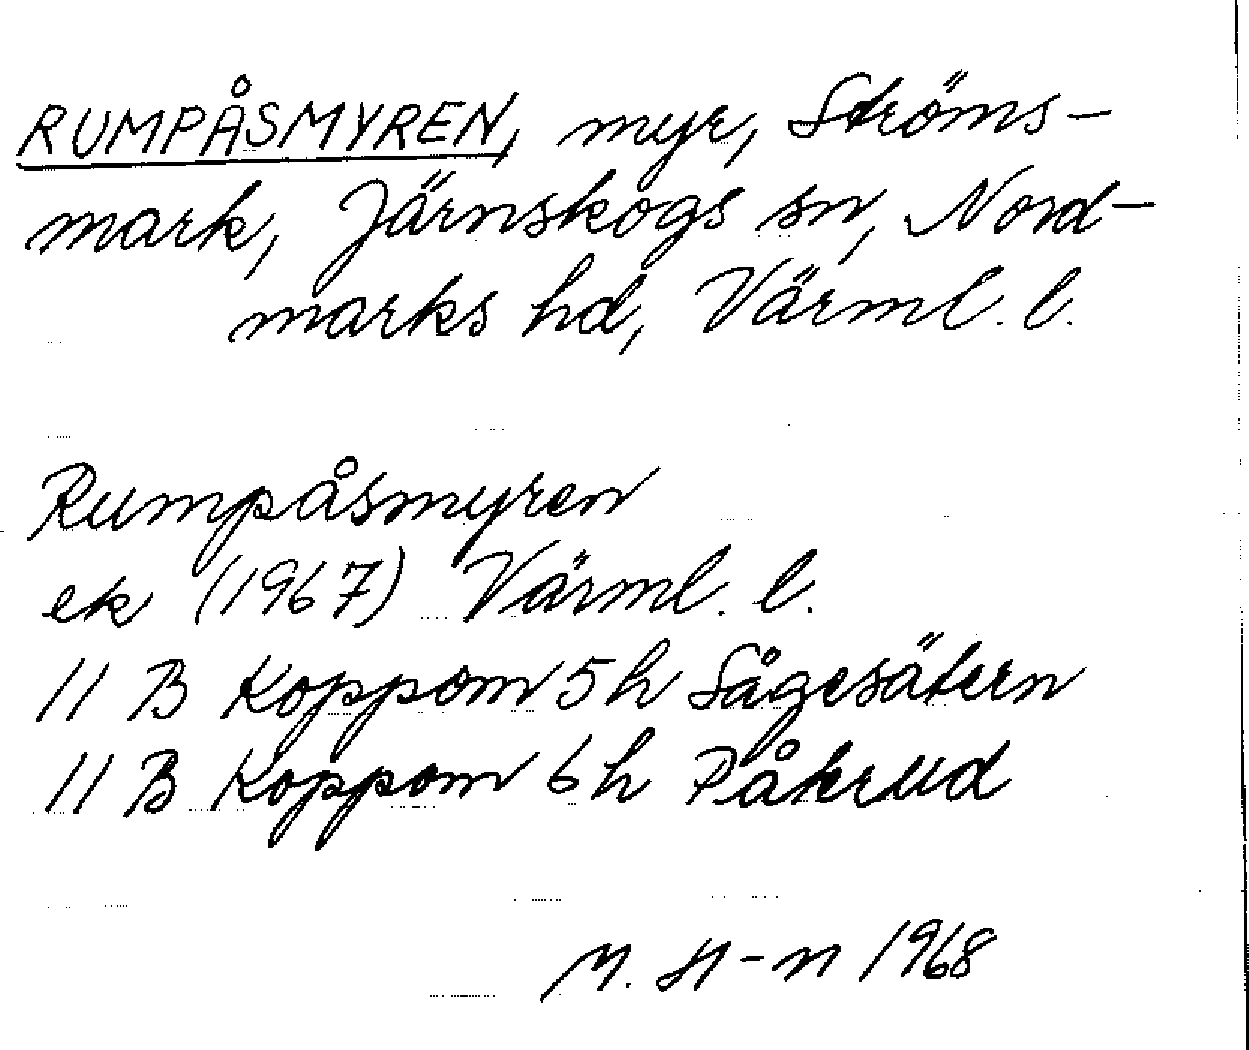 RUMPÅSMYREN, myr, Ströms-
mark, Järnskogs sn, Nord-
marks hd, Värml. l.
Rumpåsmyren
ek (1967) Värml. l.
11 B Koppom 5h Sågesätern
11 B Koppom 6h Påkerud
M. H-n 1968